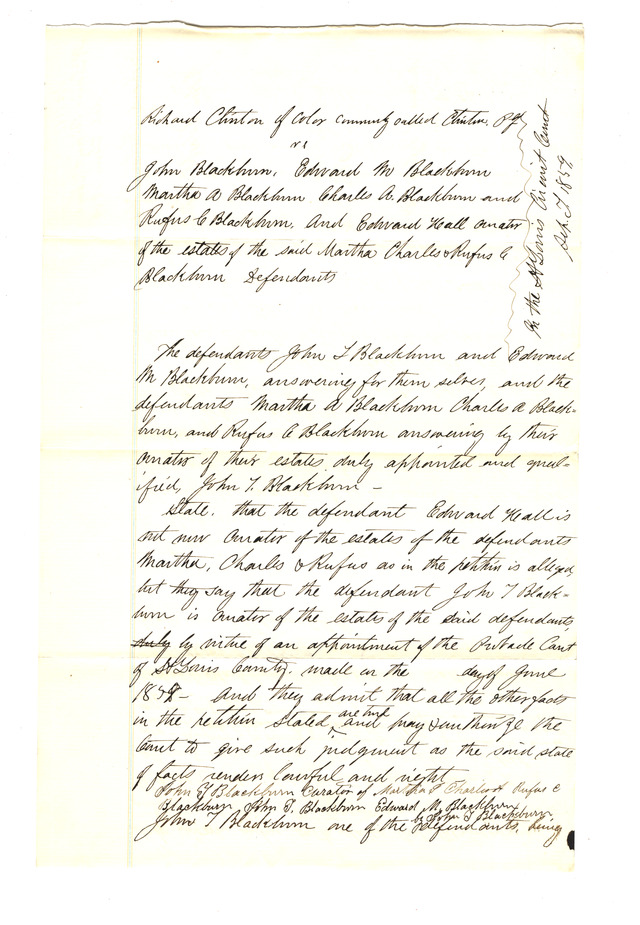 Richard Clinton of color commonly called Clinton. Plf
vs
John Blackburn, Edward M Blackburn
Martha A Blackburn Charles A. Blackburn and
Rufus C Blackburn. And Edward Hall curator
of the estates of the said Martha Charles & Rufus C
Blackburn Defendants
In the St Louis Circuit Court
1859
The defendants John T Blackburn and Edward
M Blackburn, answering for them selves, and the
defendants Martha A Blackburn Charles A Black-
burn, and Rufus C Blackburn answering by their
curator of their estates duly appointed and qual-
ified, John T. Blackburn –
State, that the defendant Edward Hall is
not now curator of the estates of the defendants
Martha, Charles & Rufus as in the petition is alleged,
but they say that the defendant John T Black-
burn is curator of the estates of the said defendants,
duly by virtue of an appointment of the Probate Court
of St Louis County. made on the day of June
And they admit that all the other facts
in the petition stated, are true and pray & authorize the
Court to give such judgment as the said state
of facts renders lawful and right
John T Blackburn Curator of Martha Charles & Rufus C
Blackburn, John T. Blackburn Edward M. Blackburn
by John T Blackburn
John T Blackburn one of the defendants, being